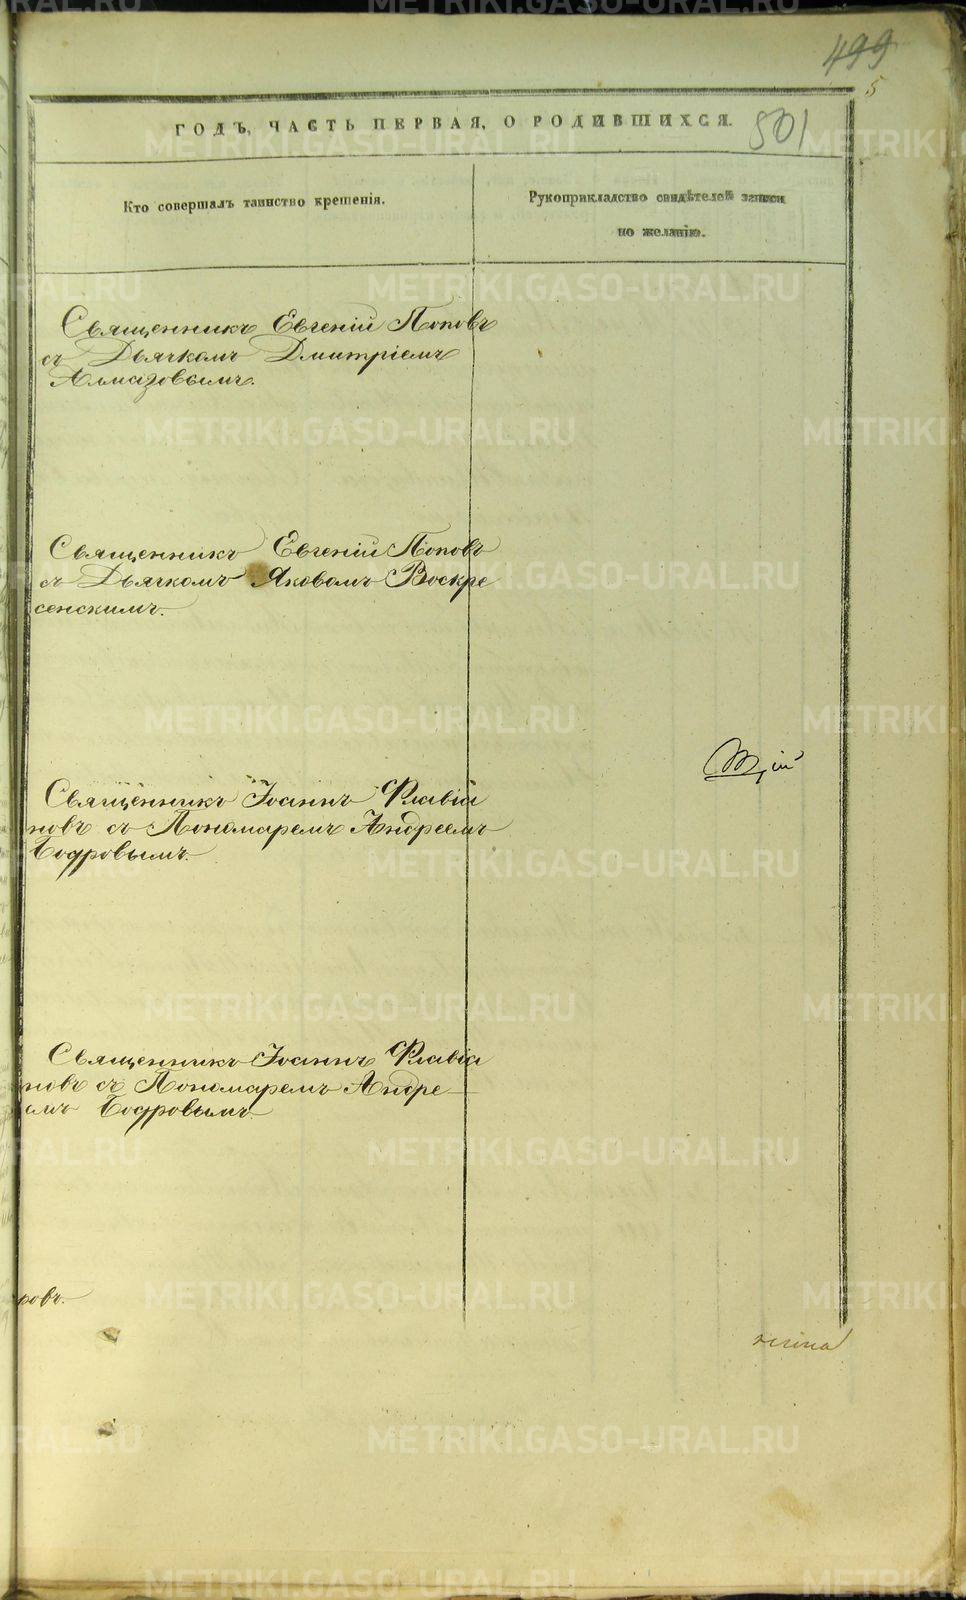 499
5
501
ГОДЪ, ЧАСТЬ ПЕРВАЯ, О РОДИВШИХСЯ.
Кто совершалъ таинство крещенія.
Рукоприкладство свидѣтелей записи
по желанію.
Священникъ Евгеній Поповъ
съ Дьячкомъ Дмитріемъ
Алмазовымъ.
Священникъ Евгеній Поповъ
съ Дьячкомъ Яковомъ Воскре
сенскимъ.
Священникъ Іоаннъ Флавіа
новъ съ Пономаремъ Андреемъ
Бодровымъ.
Священникъ Іоаннъ Флавіа
новъ съ Пономаремъ Андре
емъ Бодровымъ.
ровъ.
METRIKI.GASO-URAL.RU